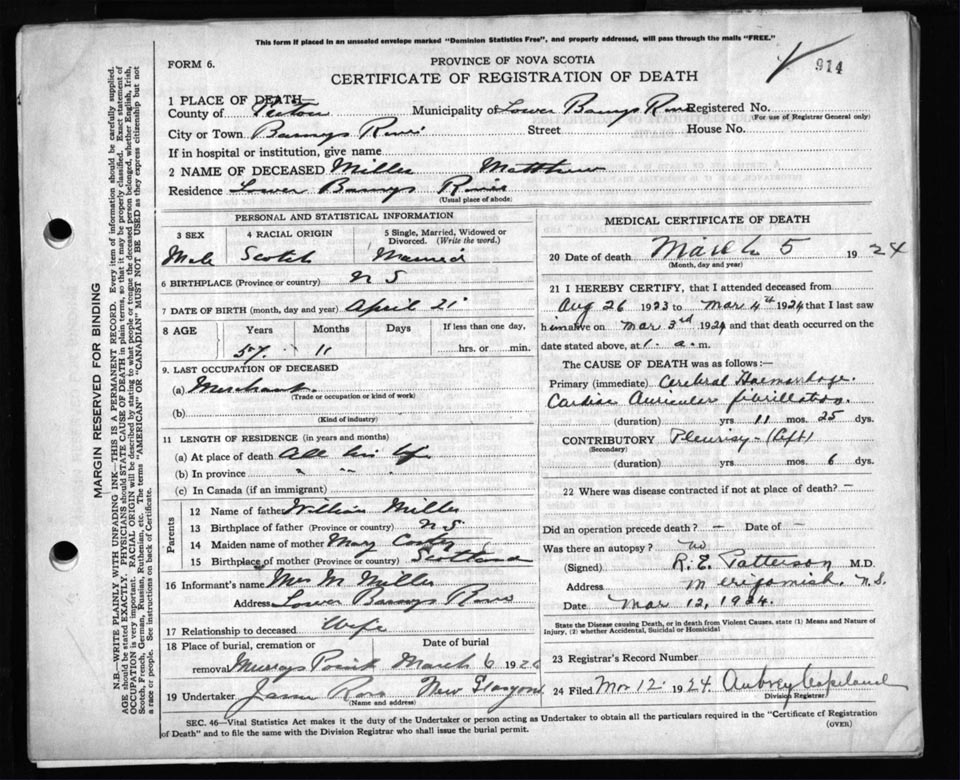 This form if placed in an unsealed envelope marked "Dominion Statistics Free", and properly addressed, will pass through the mails "FREE."
FORM 6.
PROVINCE OF NOVA SCOTIA
CERTIFICATE OF REGISTRATION OF DEATH
914
1 PLACE OF DEATH—
County of Pictou Municipality of Lower Barneys River Registered No.
(For use of Registrar General only)
City or Town Barneys River Street House No.
If in hospital or institution, give name
2 NAME OF DECEASED Miller Matthew
Residence Lower Barneys River
(Usual place of abode)
PERSONAL AND STATISTICAL INFORMATION
3 SEX 4 RACIAL ORIGIN 5 Single, Married, Widowed or Divorced. (Write the word.)
Male Scotch Married
6 BIRTHPLACE (Province or country) N S
7 DATE OF BIRTH (month, day and year) April 21
8 AGE Years Months Days If less than one day,
57 11 hrs. or min.
9. LAST OCCUPATION OF DECEASED
(a) Merchant
(Trade or occupation or kind of work)
(b)
(Kind of industry)
11 LENGTH OF RESIDENCE (in years and months)
(a) At place of death All his life
(b) In province " " "
(c) In Canada (if an immigrant)
Parents
12 Name of father William Miller
13 Birthplace of father (Province or country) N S
14 Maiden name of mother Mary
15 Birthplace of mother (Province or country) Scotland
16 Informant's name Mrs M Miller
Address Lower Barneys River
17 Relationship to deceased Wife
18 Place of burial, cremation or Date of burial
removal Murrays Point March 6 1926
19 Undertaker Ross New Glasgow
(Name and address)
MEDICAL CERTIFICATE OF DEATH
20 Date of death March 5 1924
(Month, day and year)
21 I HEREBY CERTIFY, that I attended deceased from
Aug 26 1923 to Mar 4th 1924 that I last saw
him alive on Mar 3rd 1924 and that death occurred on
date stated above, at 1. a.m.
The CAUSE OF DEATH was as follows:—
Primary (immediate) Cerebral Haemorrhage.
Cardiac Auricular fibrillation.
(duration) yrs 11 mos. 25 dys.
CONTRIBUTORY Pleurisy - (left)
(Secondary)
(duration) yrs mos. 6 dys.
22 Where was disease contracted if not at place of death? —
Did an operation precede death? — Date of —
Was there an autopsy? no
(Signed) R. E. Patterson M.D.
Address Merigomish, N.S.
Date Mar 12, 1924.
State the Disease causing Death, or in death from Violent Causes, state (1) Means and Nature of
Injury, (2) whether Accidental, Suicidal or Homicidal
23 Registrar's Record Number
24 Filed Mar 12 1924. Aubrey Copeland
Division Registrar
SEC. 46—Vital Statistics Act makes it the duty of the Undertaker or person acting as Undertaker to obtain all the particulars required in the "Certificate of Registration
of Death" and to file the same with the Division Registrar who shall issue the burial permit.
(OVER)
MARGIN RESERVED FOR BINDING
N.B—WRITE PLAINLY WITH UNFADING INK—THIS IS A PERMANENT RECORD. Every item of information should be carefully supplied.
AGE should be stated EXACTLY. PHYSICIANS should STATE CAUSE OF DEATH in plain terms, so that it may be properly classified. Exact statement of
OCCUPATION is very important. RACIAL ORIGIN will be described by stating to what people or tongue the deceased person belonged, whether English, Irish,
Scotch, French, German, Russian, Ruthenian, etc. The terms "AMERICAN" OR "CANADIAN" MUST NOT BE USED as they express citizenship but not
a race or people. See instructions on back of Certificate.